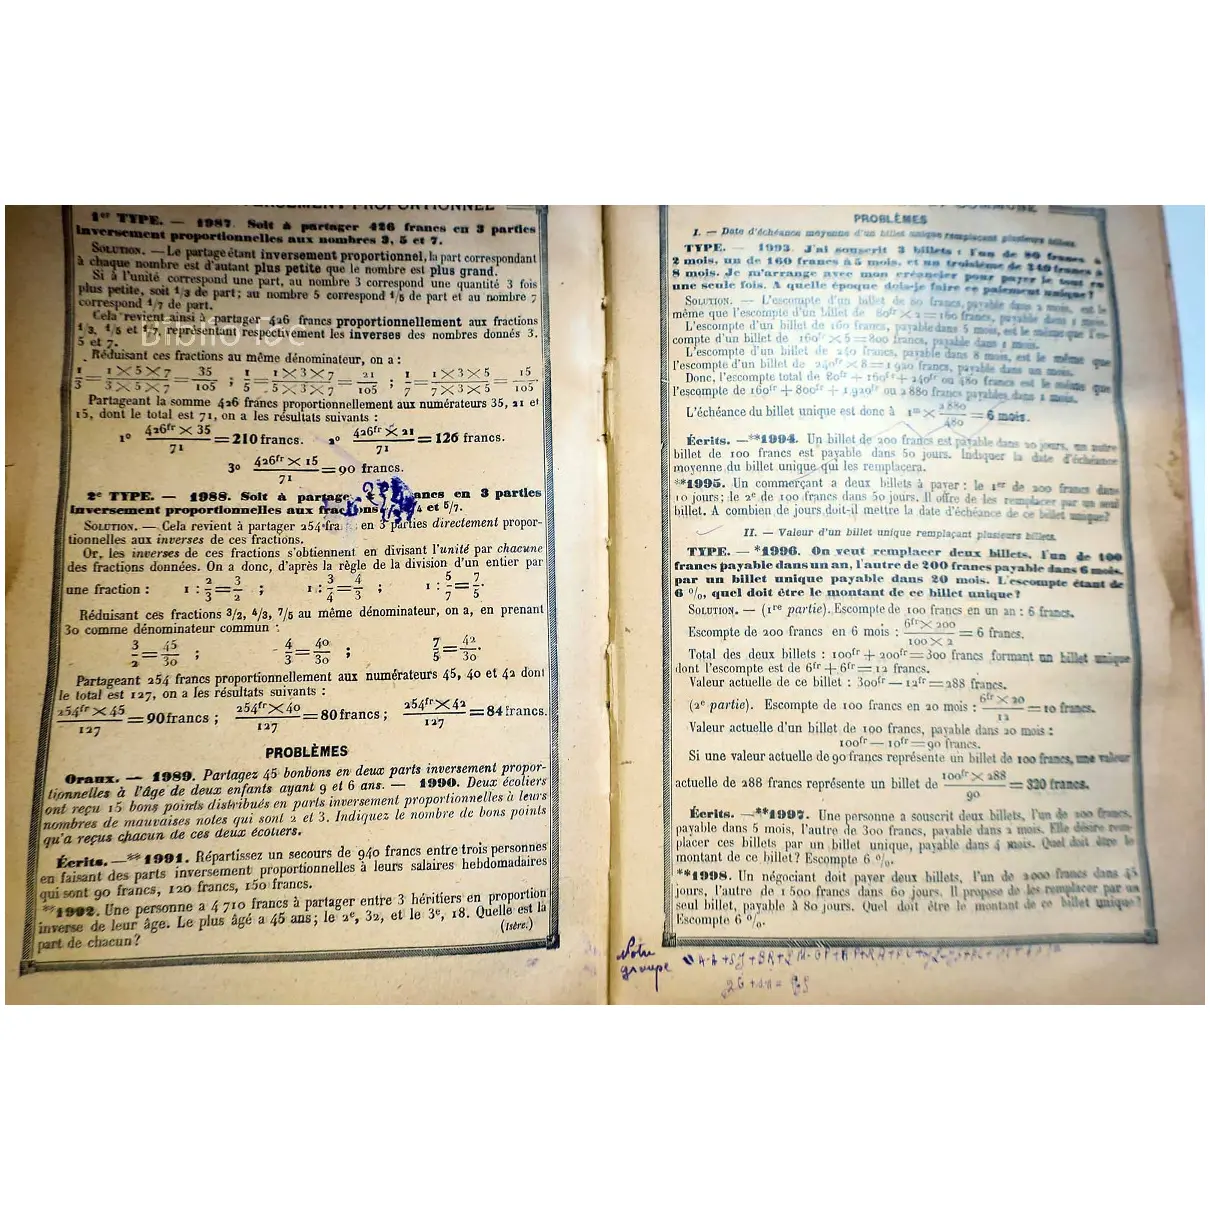 PROPORTIONNEL
1er TYPE. — 1987. Soit à partager 426 francs en 3 parties
inversement proportionnelles aux nombres 3, 5 et 7.
SOLUTION. — Le partage étant inversement proportionnel, la part correspondant
à chaque nombre est d'autant plus petite que le nombre est plus grand.
Si à l'unité correspond une part, au nombre 3 correspond une quantité 3 fois
plus petite, soit 1/3 de part; au nombre 5 correspond 1/5 de part et au nombre 7
correspond 1/7 de part.
Cela revient ainsi à partager 426 francs proportionnellement aux fractions
1/3, 1/5 et 1/7, représentant respectivement les inverses des nombres donnés 3,
5 et 7.
Réduisant ces fractions au même dénominateur, on a :
1/3 = 1×5×7/3×5×7 = 35/105 ; 1/5 = 1×3×7/5×3×7 = 21/105 ; 1/7 = 1×3×5/7×3×5 = 15/105
Partageant la somme 426 francs proportionnellement aux numérateurs 35, 21 et
15, dont le total est 71, on a les résultats suivants :
1o 426fr × 35/71 = 210 francs. 2o 426fr × 21/71 = 126 francs.
3o 426fr × 15/71 = 90 francs.
2e TYPE. — 1988. Soit à partage francs en 3 parties
inversement proportionnelles aux fractions 4 et 5/7.
SOLUTION. — Cela revient à partager 254 fra en 3 parties directement propor-
tionnelles aux inverses de ces fractions.
Or, les inverses de ces fractions s'obtiennent en divisant l'unité par chacune
des fractions données. On a donc, d'après la règle de la division d'un entier par
une fraction : 1 : 2/3 = 3/2 ; 1 : 3/4 = 4/3 ; 1 : 5/7 = 7/5.
Réduisant ces fractions 3/2, 4/3, 7/5 au même dénominateur, on a, en prenant
30 comme dénominateur commun :
3/2 = 45/30 ; 4/3 = 40/30 ; 7/5 = 42/30.
Partageant 254 francs proportionnellement aux numérateurs 45, 40 et 42 dont
le total est 127, on a les résultats suivants :
254fr × 45/127 = 90 francs ; 254fr × 40/127 = 80 francs ; 254fr × 42/127 = 84 francs.
PROBLÈMES
Oraux. — 1989. Partagez 45 bonbons en deux parts inversement propor-
tionnelles à l'âge de deux enfants ayant 9 et 6 ans. — 1990. Deux écoliers
ont reçu 15 bons points distribués en parts inversement proportionnelles à leurs
nombres de mauvaises notes qui sont 2 et 3. Indiquez le nombre de bons points
qu'a reçus chacun de ces deux écoliers.
Écrits. — **1991. Répartissez un secours de 940 francs entre trois personnes
en faisant des parts inversement proportionnelles à leurs salaires hebdomadaires
qui sont 90 francs, 120 francs, 150 francs.
**1992. Une personne a 4 710 francs à partager entre 3 héritiers en proportion
inverse de leur âge. Le plus âgé a 45 ans; le 2e, 32, et le 3e, 18. Quelle est la
part de chacun? (Isère.)
Biblio
COMMUNE
PROBLÈMES
I. — Date d'échéance moyenne d'un billet unique remplaçant plusieurs billets.
TYPE. — 1993. J'ai souscrit 3 billets : l'un de 80 francs à
2 mois, un de 160 francs à 5 mois, et un troisième de 240 francs à
8 mois. Je m'arrange avec mon créancier pour payer le tout en
une seule fois. A quelle époque dois-je faire ce paiement unique?
SOLUTION. — L'escompte d'un billet de 80 francs, payable dans 2 mois, est le
même que l'escompte d'un billet de 80fr × 2 = 160 francs, payable dans 1 mois.
L'escompte d'un billet de 160 francs, payable dans 5 mois, est le même que l'es-
compte d'un billet de 160fr × 5 = 800 francs, payable dans 1 mois.
L'escompte d'un billet de 240 francs, payable dans 8 mois, est le même que
l'escompte d'un billet de 240fr × 8 = 1 920 francs, payable dans un mois.
Donc, l'escompte total de 80fr + 160fr + 240fr ou 480 francs est le même que
l'escompte de 160fr + 800fr + 1.920fr ou 2 880 francs payables dans 1 mois.
L'échéance du billet unique est donc à 1m × 2880/480 = 6 mois.
Écrits. — **1994. Un billet de 200 francs est payable dans 20 jours, un autre
billet de 100 francs est payable dans 50 jours. Indiquer la date d'échéance
moyenne du billet unique qui les remplacera.
**1995. Un commerçant a deux billets à payer : le 1er de 200 francs dans
10 jours; le 2e de 100 francs dans 50 jours. Il offre de les remplacer par un seul
billet. A combien de jours doit-il mettre la date d'échéance de ce billet unique?
II. — Valeur d'un billet unique remplaçant plusieurs billets.
TYPE. — *1996. On veut remplacer deux billets, l'un de 100
francs payable dans un an, l'autre de 200 francs payable dans 6 mois,
par un billet unique payable dans 20 mois. L'escompte étant de
6 %, quel doit être le montant de ce billet unique?
SOLUTION. — (1re partie). Escompte de 100 francs en un an : 6 francs.
Escompte de 200 francs en 6 mois : 6fr × 200/100 × 2 = 6 francs.
Total des deux billets : 100fr + 200fr = 300 francs formant un billet unique
dont l'escompte est de 6fr + 6fr = 12 francs.
Valeur actuelle de ce billet : 300fr — 12fr = 288 francs.
(2e partie). Escompte de 100 francs en 20 mois : 6fr × 20/12 = 10 francs.
Valeur actuelle d'un billet de 100 francs, payable dans 20 mois :
100fr — 10fr = 90 francs.
Si une valeur actuelle de 90 francs représente un billet de 100 francs, une valeur
actuelle de 288 francs représente un billet de 100fr × 288/90 = 320 francs.
Écrits. — **1997. Une personne a souscrit deux billets, l'un de 200 francs,
payable dans 5 mois, l'autre de 300 francs, payable dans 2 mois. Elle désire rem-
placer ces billets par un billet unique, payable dans 4 mois. Quel doit être le
montant de ce billet? Escompte 6 %.
**1998. Un négociant doit payer deux billets, l'un de 2000 francs dans 45
jours, l'autre de 1 500 francs dans 60 jours. Il propose de les remplacer par un
seul billet, payable à 80 jours. Quel doit être le montant de ce billet unique?
Escompte 6 %.
Notre
groupe